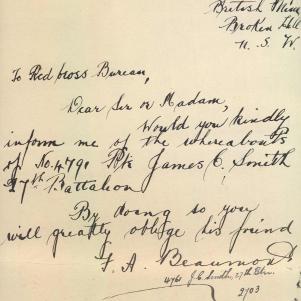 British Mine
Broken Hill
N. S. W.
To Red Cross Bureau,
Dear Sir or Madam,
Would you kindly
inform me of the whereabouts
of No. 4791 Pte James C. Smith
27th Battalion
By doing so you
will greatly oblige his friend
F. A. Beaumont
4761 J C Smith, 27th Btn.
2703